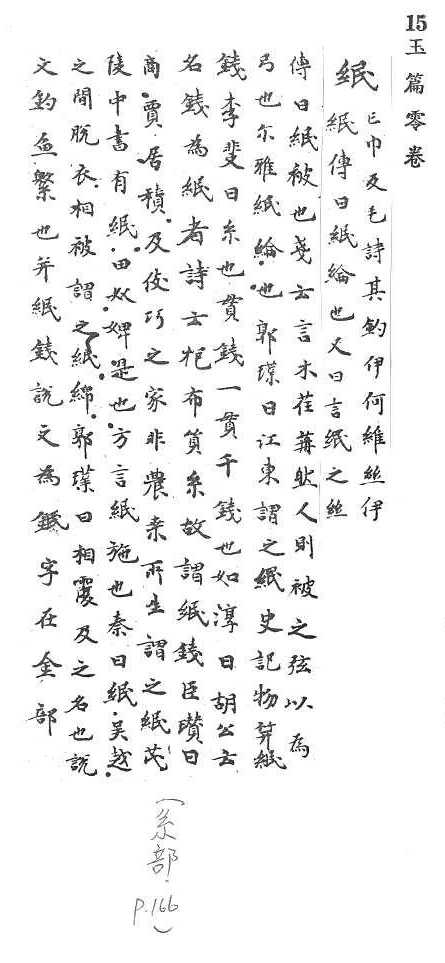 15 玉篇零卷
緡 亡巾反毛詩其釣伊何維絲伊
緡傳曰緡綸也又曰言緡之絲
傳曰緡被也箋云言木荏苒然人則被之弦以為
弓也尒雅緡綸也郭璞曰江東謂之緡史記物筭緡
錢李斐曰糸也貫錢一貫千錢也如淳曰胡公云
名錢為緡者詩云抱布貿糸故謂緡錢臣瓚曰
商賈居積及伎巧之家非農桒所生謂之緡茂
陵中書有緡田奴婢是也方言緡施也秦曰緡吴越
之間脫衣相被謂之緡綿郭璞曰相覆及之名也說
文釣魚繁也并緡錢說文為鍲字在金部
(糸部 P.166)